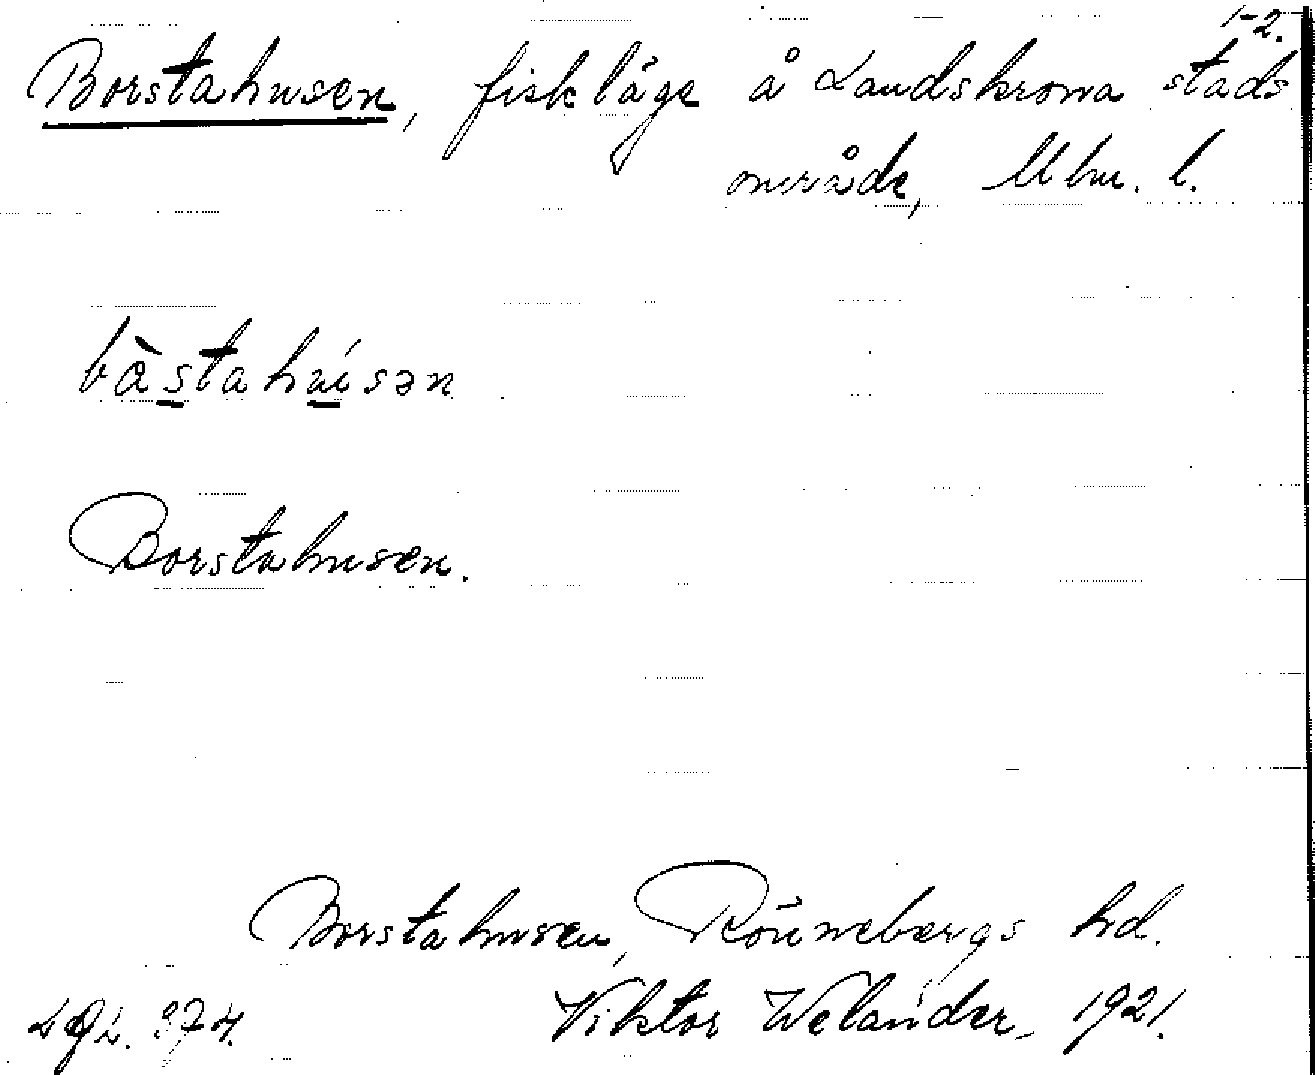 1-2.
Borstahusen, fiskläge å Landskrona stads
område, Mhu. l.
bàstahúsən
Borstahusen.
Borstahusen, Rönnebergs hd.
Viktor Welander, 1921.
374.